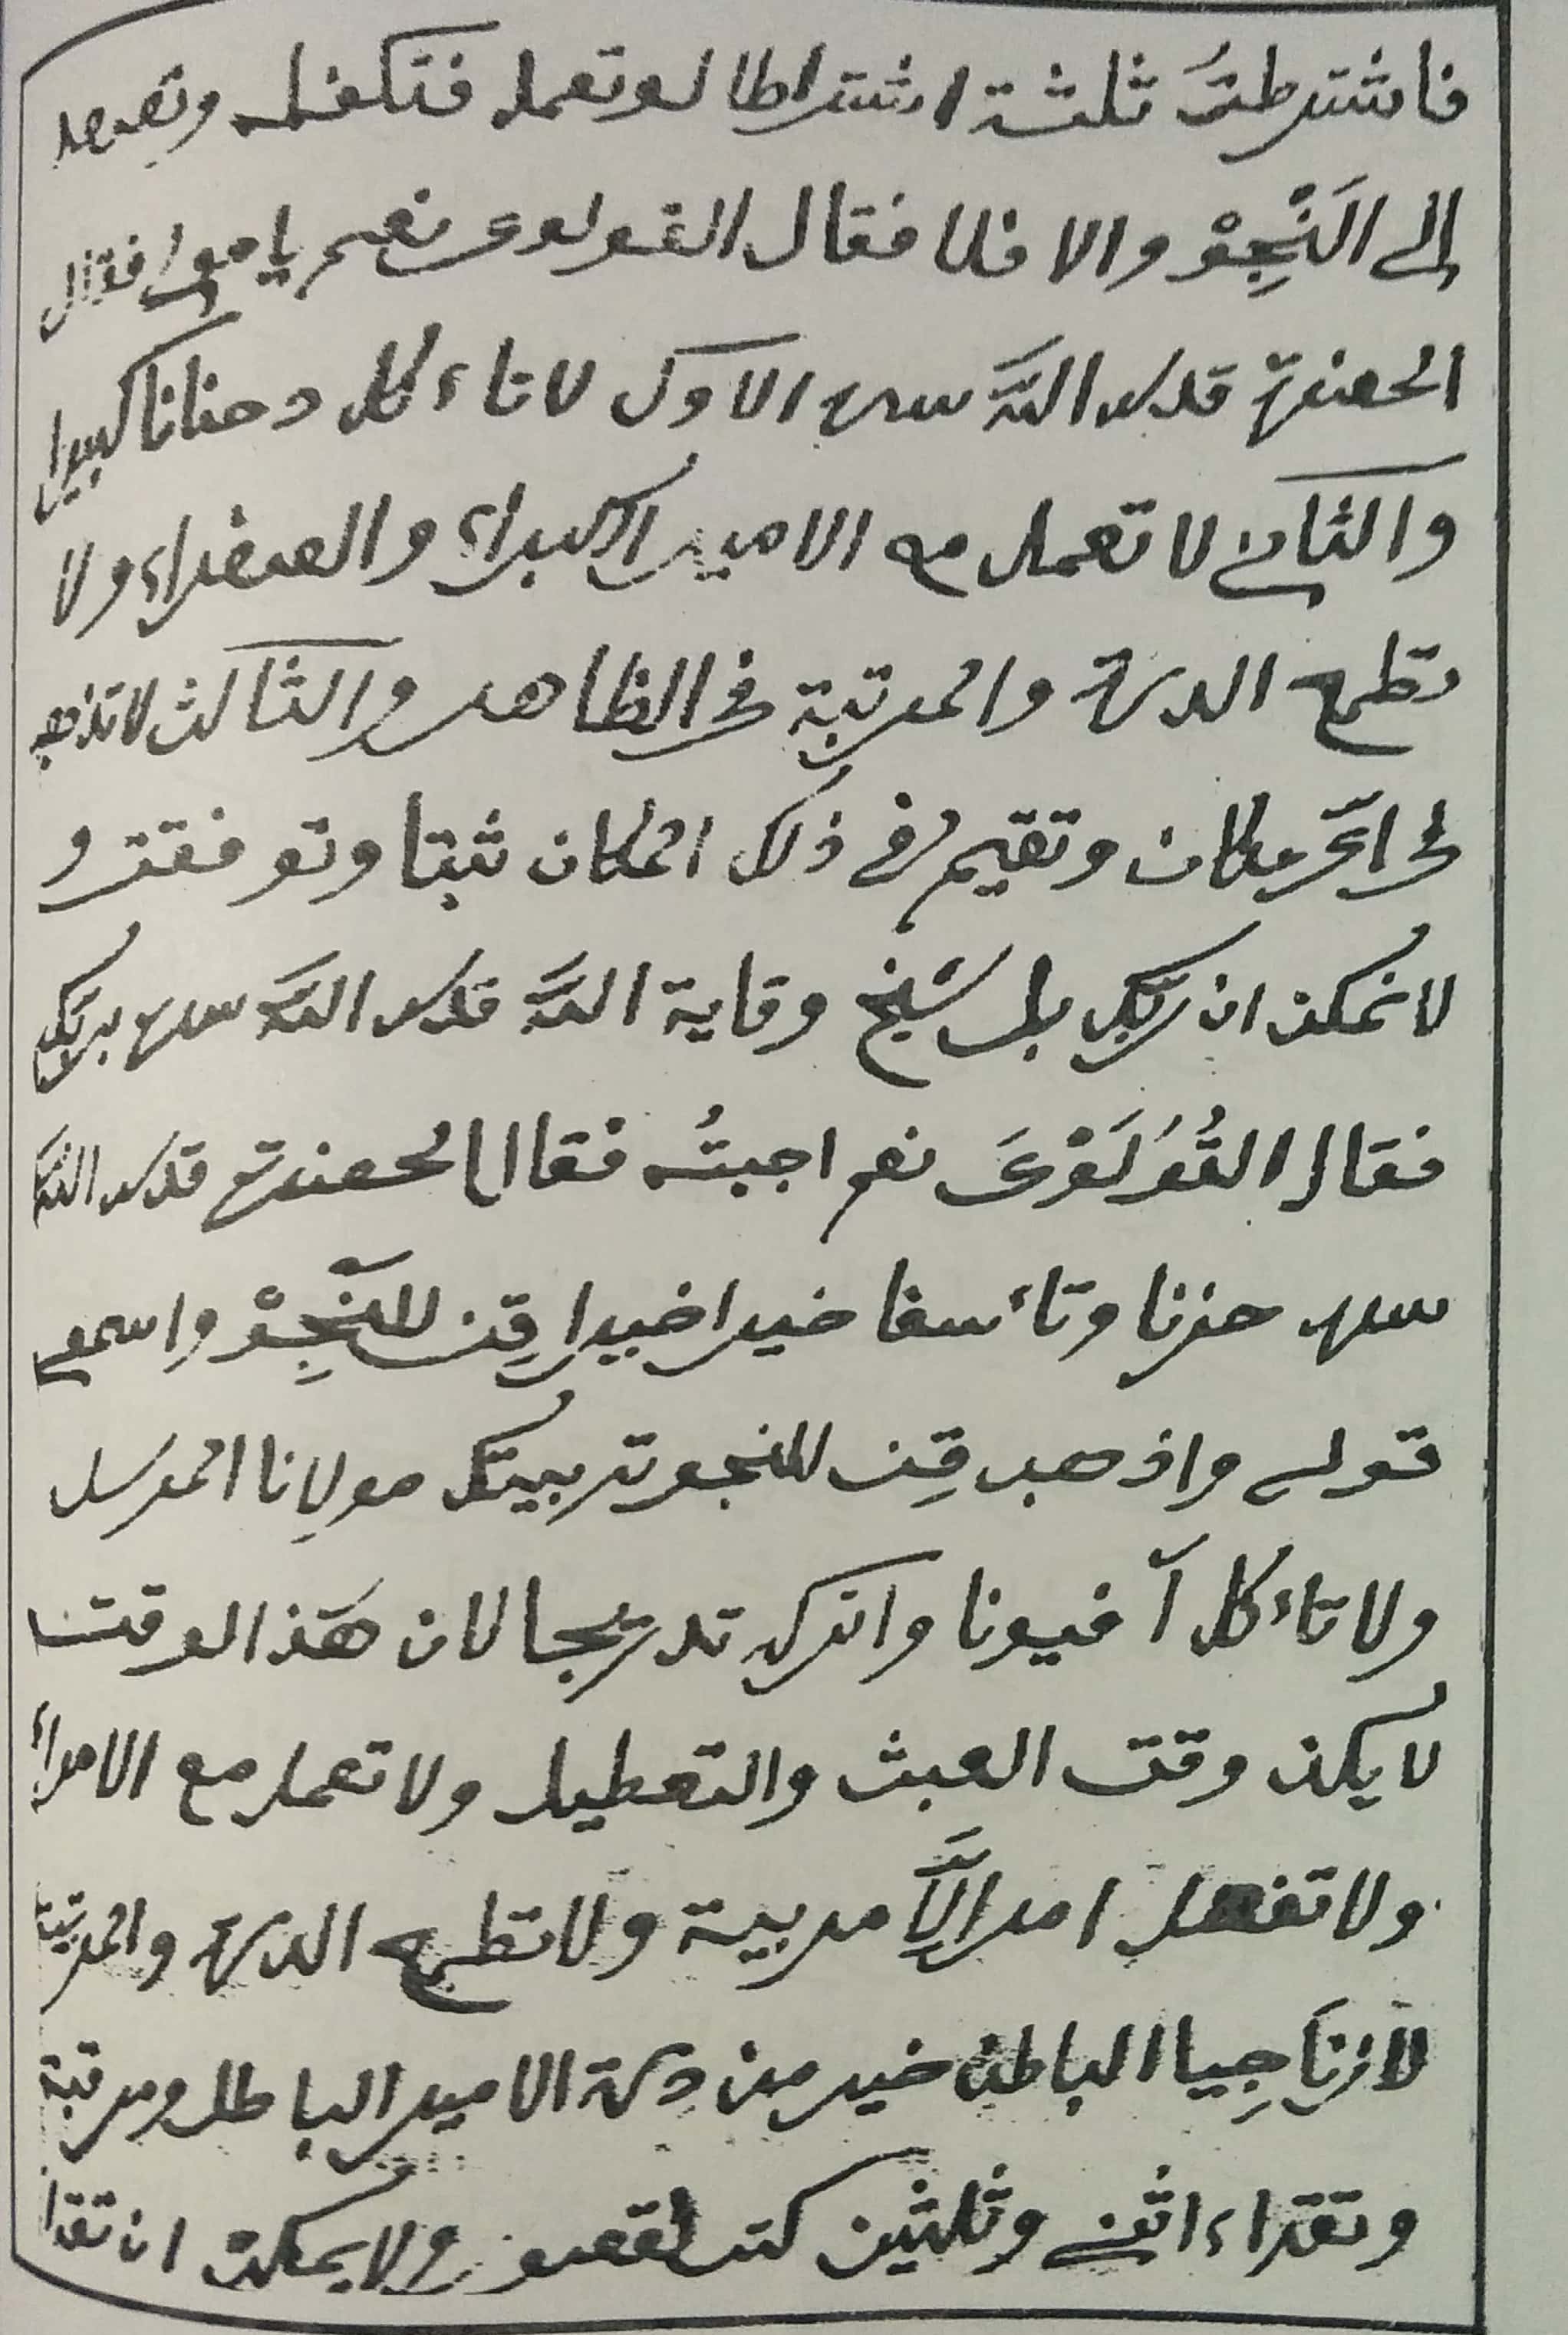 فاشترطتُ ثلثة اشتراطا لو تعمل فتكفل وتصعد
الى الَنْجِوْ والا فلا فقال القولوى نعم يا مولى فقال
الحضرة قدس اللّٰه سره الاول لا تاءكل دخنانا كبيرا
والثانى لا تعمل مع الامير الكبراء والصغراء ولا
تطرح الدرة والمرتبة فى الظاهر والثالث لا تذهب
فى اىّ مكان وتقيم فى ذلك المكان ثبتا وتوفقت و
لا نمكن ان ربّك بل شيخ وقاية اللّٰه قدس اللّٰه سره بربّك
فقال القُوَلَوْىَ نعم اجبتُه فقال الحضرة قدس اللّٰه
سره حزنا وتأسفا خيرا خبيرا قِف للنّجِوْ واسمع
قولى واذهب قِف للنجو تربيتك مولانا المرسل
ولا تاءكل آفيونا واترك تدريجا لان هٰذ الوقت
لا يكن وقت العبث والتعطيل ولا تعمل مع الامراء
ولا تفعل امرا الّا مربية ولا تطرح الدرة والمرتبة
لان نَاجِيا الباطن خير من درة الامير الباطل ومرتبة
وتقراء اثنى وثلثين كتب ولا يمكن ان تقرا